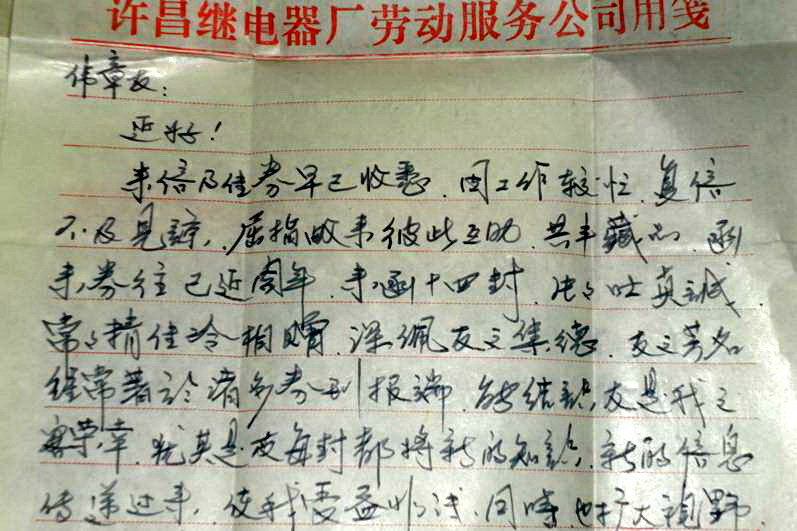 许昌继电器厂劳动服务公司用笺
伟章友：
近好！
来信及佳券早已收悉.因工作较忙.复信
不及见谅.屈指数来彼此互助.共丰藏品.函
来券往已近周年.来函十四封.比比吐真诚
常常精佳冷相赠.深佩友之集德.友之芳名
经常著于诸多券刊报端.能结识友是我之
荣幸.尤其是友每封都将新的知识.新的信息
传递过来.使我受益匪浅.同時也扩大视野.